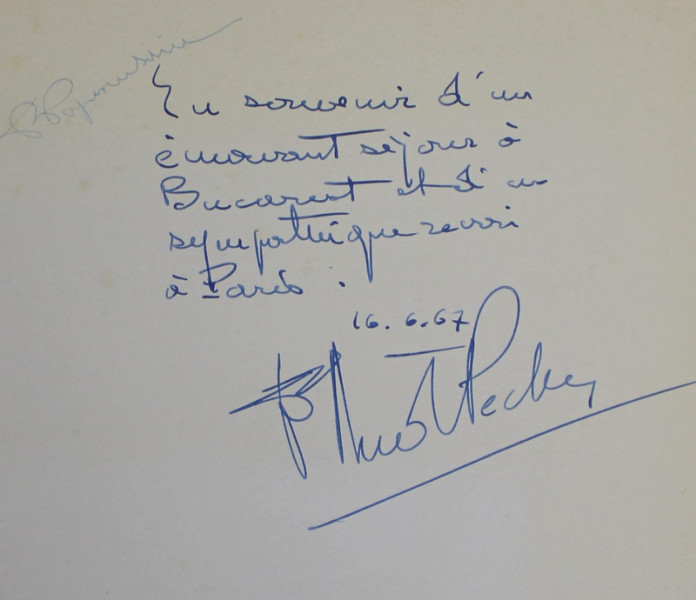 En souvenir d'un
émouvant séjour à
Bucarest et d'un
sympathique revoir
à Paris.
16.6.67